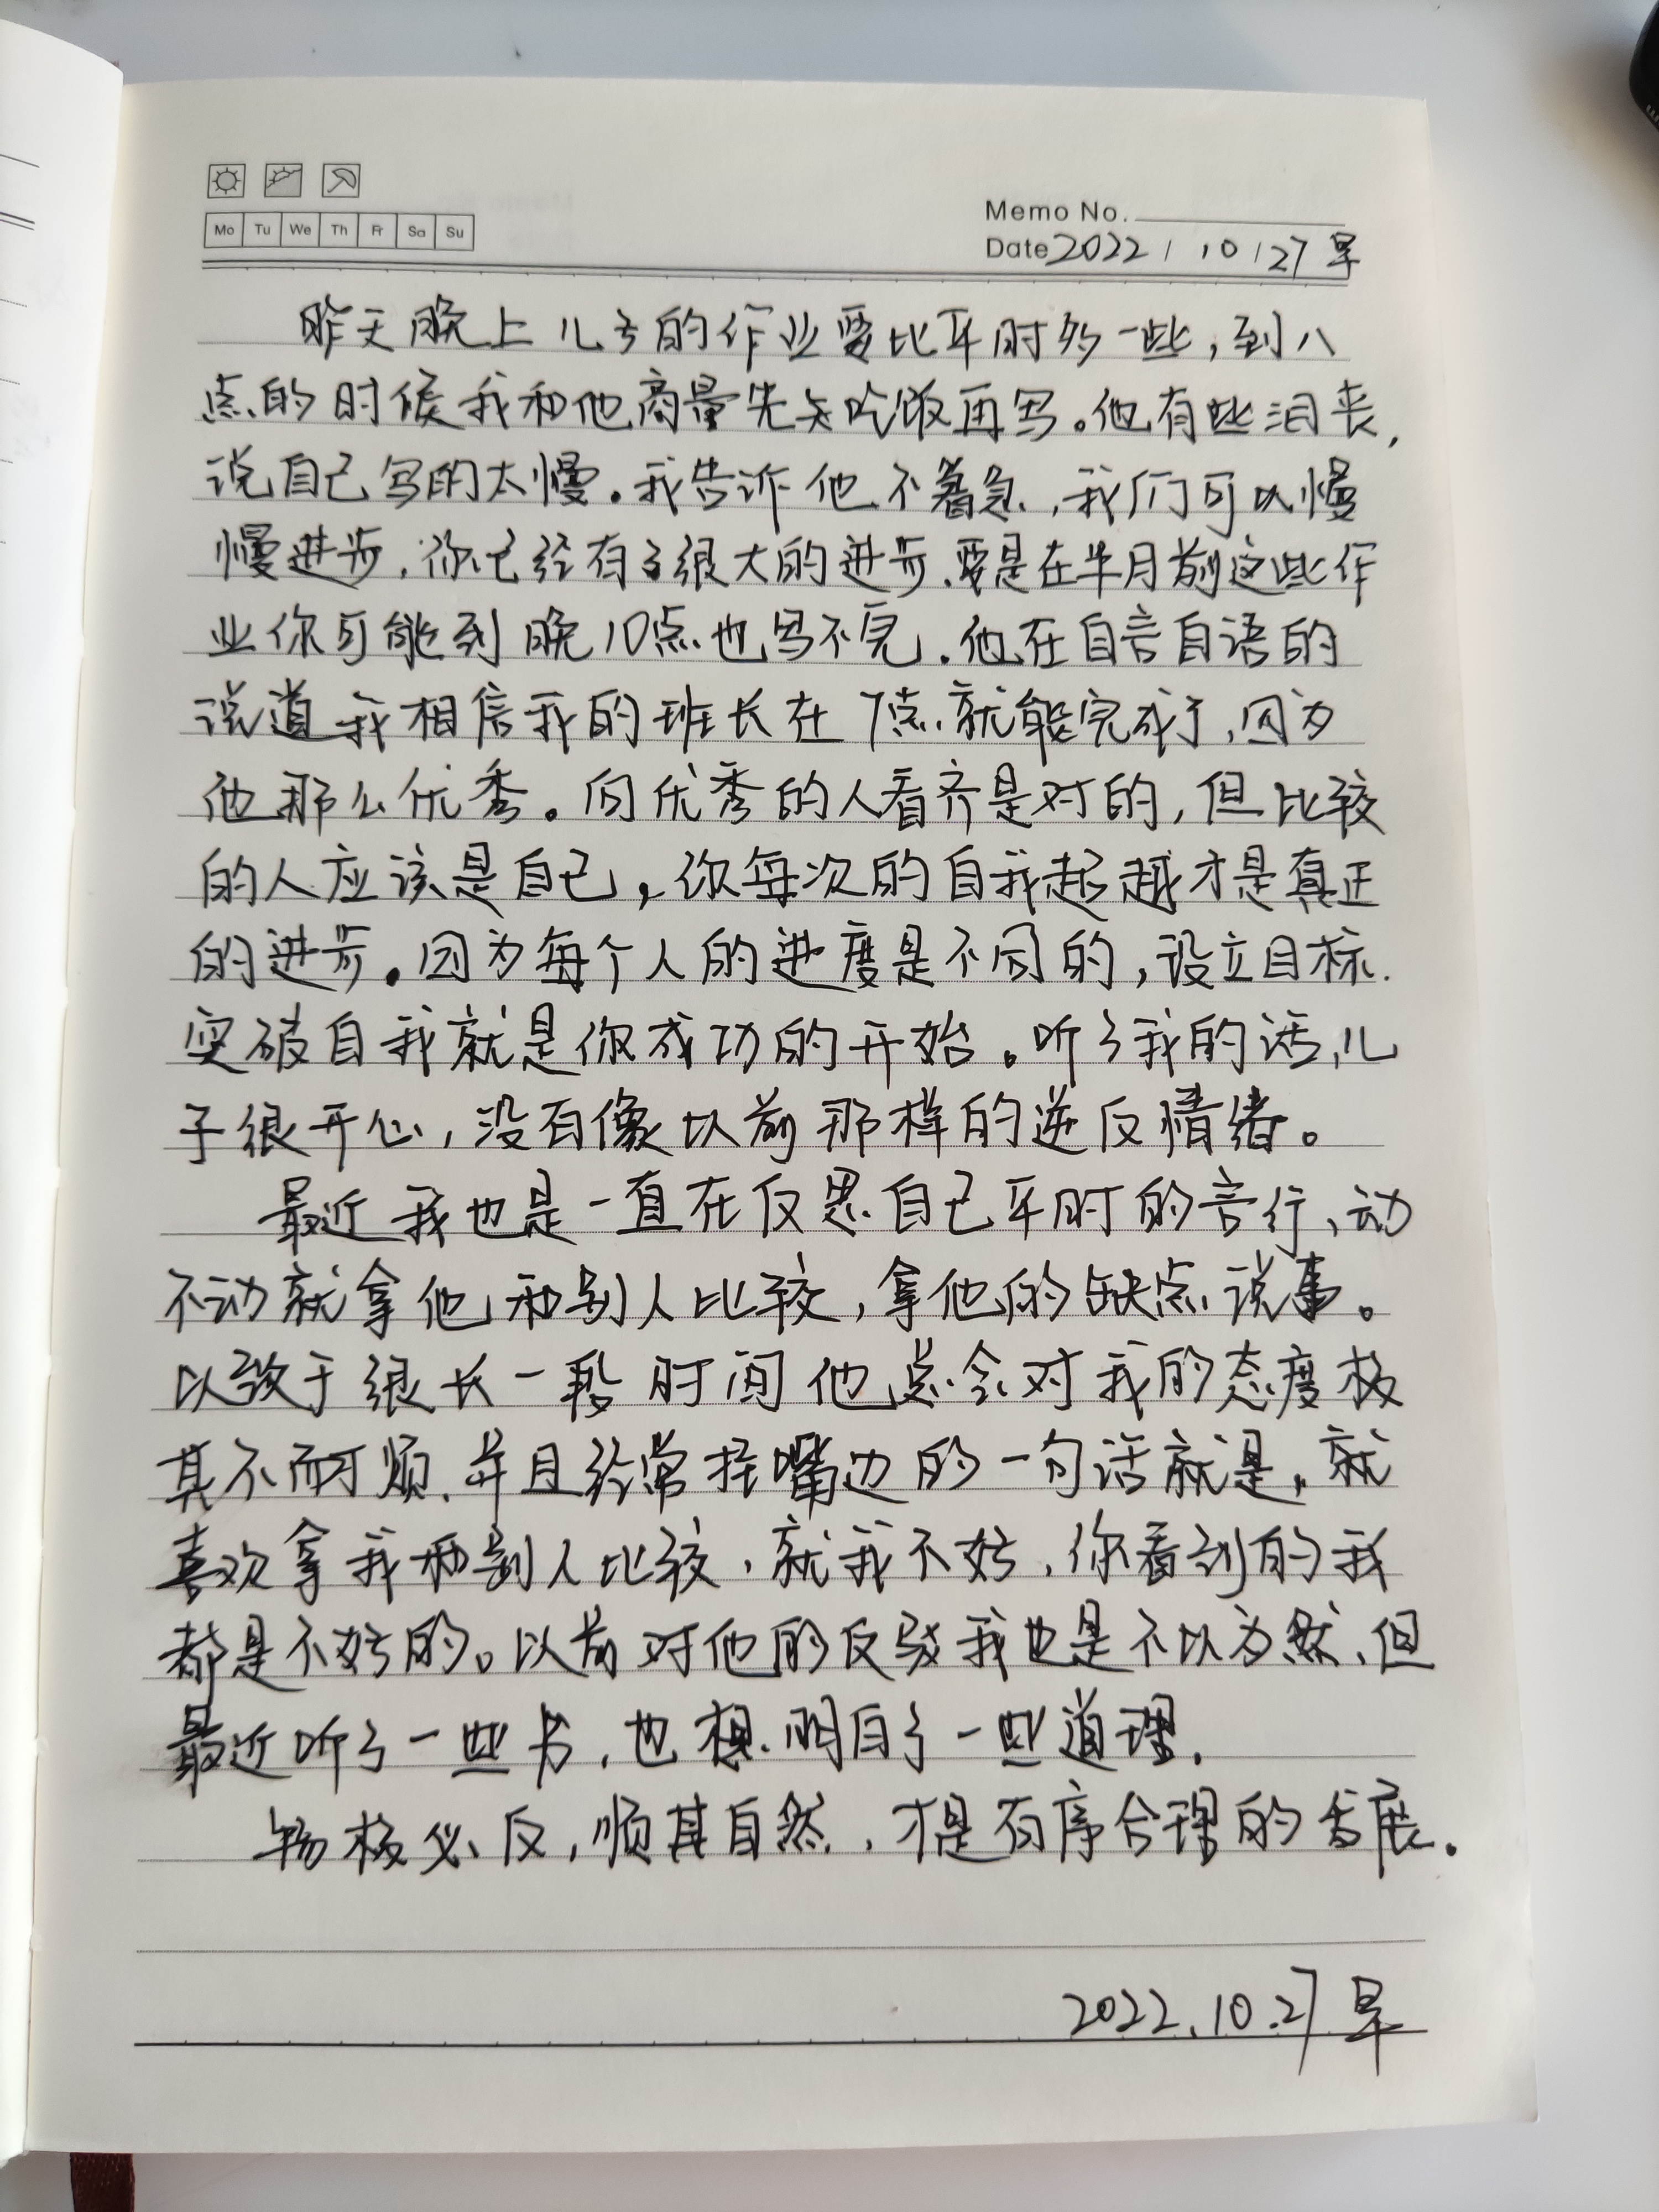 Mo Tu We Th Fr Sa Su
Memo No.
Date 2022 / 10 / 27 早
昨天晚上儿子的作业要比平时多一些，到八
点的时候我和他商量先去吃饭再写。他有些沮丧，
说自己写的太慢。我告诉他不着急，我们可以慢
慢进步，你已经有了很大的进步，要是在半月前这些作
业你可能到晚10点也写不完。他在自言自语的
说道我相信我的班长在7点就能完成了，因为
他那么优秀。向优秀的人看齐是对的，但比较
的人应该是自己，你每次的自我超越才是真正
的进步。因为每个人的进度是不同的，设立目标.
突破自我就是你成功的开始。听了我的话，儿
子很开心，没有像以前那样的逆反情绪。
最近我也是一直在反思自己平时的言行、动
不动就拿他和别人比较，拿他的缺点说事。
以致于很长一段时间他总会对我的态度极
其不耐烦、并且经常挂嘴边的一句话就是，就
喜欢拿我和别人比较，就我不好，你看到的我
都是不好的。以前对他的反驳我也是不以为然、但
最近听了一些书，也想明白了一些道理.
物极必反，顺其自然，才是有序合理的发展.
2022.10.27 早